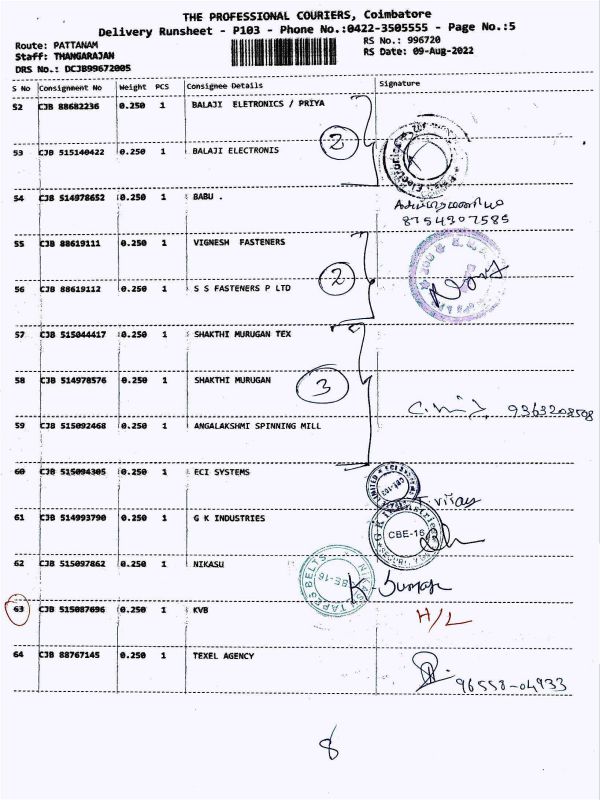 THE PROFESSIONAL COURIERS, Coimbatore
Delivery Runsheet - P103 - Phone No.:0422-3505555 - Page No.:5
Route: PATTANAM
RS No.: 996720
Staff: THANGARAJAN
RS Date: 09-Aug-2022
DRS No.: DCJB99672005
S No Consignment No Weight PCS Consignee Details Signature
52 CJB 88682236 0.250 1 BALAJI ELETRONICS / PRIYA
2
53 CJB 515140422 0.250 1 BALAJI ELECTRONIS
54 CJB 514978652 0.250 1 BABU .
8754907585
55 CJB 88619111 0.250 1 VIGNESH FASTENERS
2
56 CJB 88619112 0.250 1 S S FASTENERS P LTD
57 CJB 515044417 0.250 1 SHAKTHI MURUGAN TEX
58 CJB 514978576 0.250 1 SHAKTHI MURUGAN
3
9363208508
59 CJB 515092468 0.250 1 ANGALAKSHMI SPINNING MILL
60 CJB 515094305 0.250 1 ECI SYSTEMS
61 CJB 514993790 0.250 1 G K INDUSTRIES
CBE-16
62 CJB 515097862 0.250 1 NIKASU
63 CJB 515087696 0.250 1 KVB H/L
64 CJB 88767145 0.250 1 TEXEL AGENCY
96558-04933
8